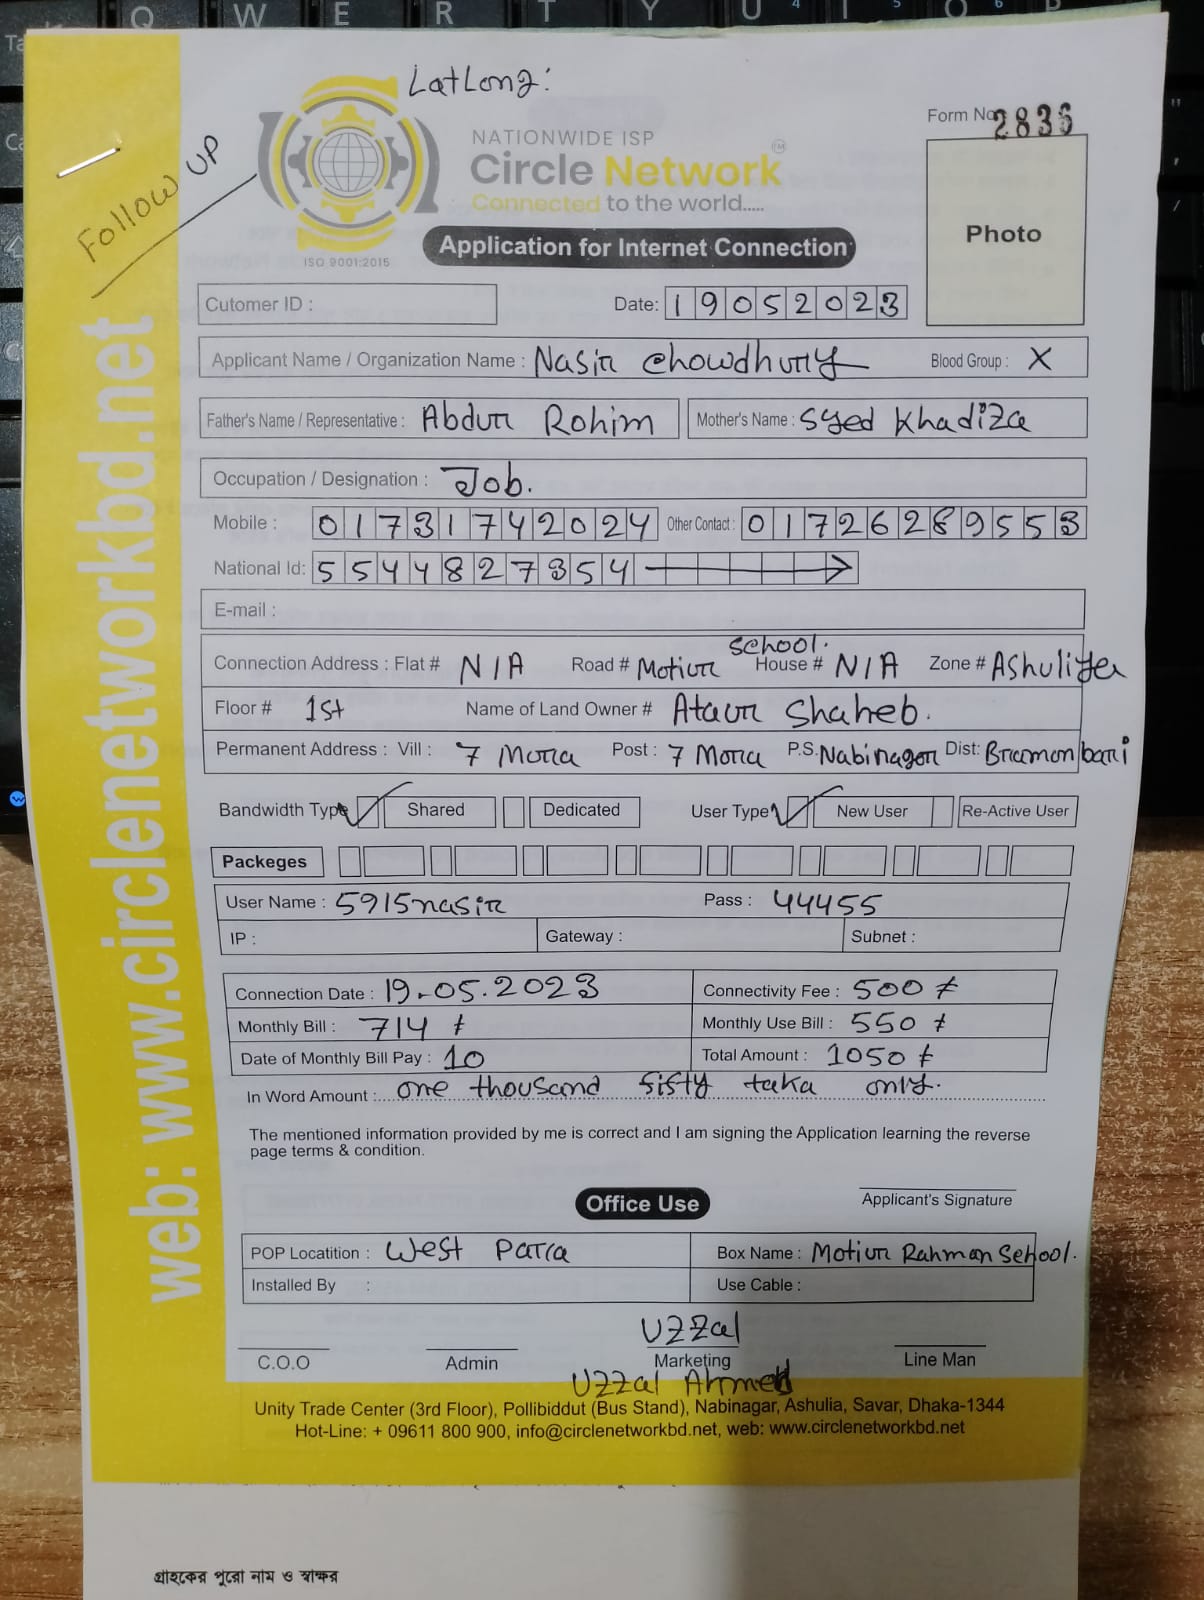 LatLong:
FOLLOW UP
NATIONWIDE ISP
Circle Network TM
Connected to the world.....
ISO 9001:2015
Form No 2836
Photo
Application for Internet Connection
Cutomer ID :
Date: 19052023
Applicant Name / Organization Name : Nasir Chowdhury Blood Group : X
Father's Name / Representative : Abdur Rohim Mother's Name : Syed Khadiza
Occupation / Designation : Job.
Mobile : 01731742024 Other Contact : 01726289553
National Id: 5544827354
E-mail :
Connection Address : Flat # N/A Road # Motiur school. House # N/A Zone # Ashuliya
Floor # 1st Name of Land Owner # Ataur Shaheb.
Permanent Address : Vill : 7 Mora Post : 7 Mora P.S. Nabinagor Dist: Bramonbari
Bandwidth Type Shared Dedicated User Type New User Re-Active User
Packeges
User Name : 5915nasir Pass : 44455
IP : Gateway : Subnet :
Connection Date : 19.05.2023 Connectivity Fee : 500 ৳
Monthly Bill : 714 ৳ Monthly Use Bill : 550 ৳
Date of Monthly Bill Pay : 10 Total Amount : 1050 ৳
In Word Amount : one thousand fisty taka only.
The mentioned information provided by me is correct and I am signing the Application learning the reverse
page terms & condition.
Applicant's Signature
Office Use
POP Locatition : West Para Box Name : Motiur Rahman School.
Installed By : Use Cable :
Uzzal
C.O.O Admin Marketing Line Man
Uzzal Ahmed
Unity Trade Center (3rd Floor), Pollibiddut (Bus Stand), Nabinagar, Ashulia, Savar, Dhaka-1344
Hot-Line: + 09611 800 900, info@circlenetworkbd.net, web: www.circlenetworkbd.net
web: www.circlenetworkbd.net
গ্রাহকের পুরো নাম ও স্বাক্ষর